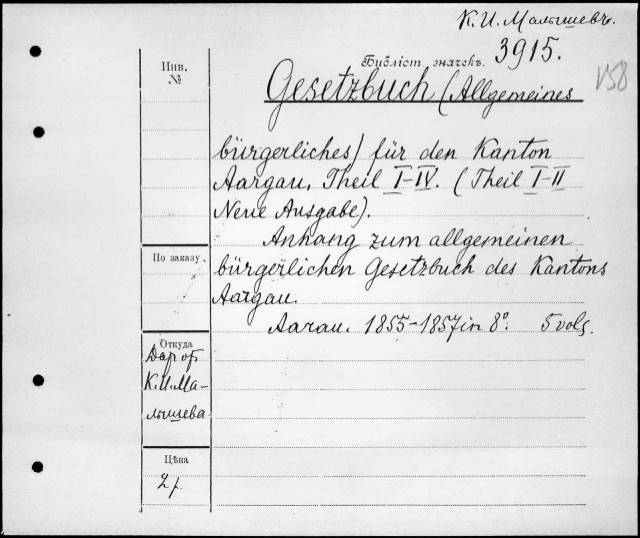 К. И. Малышевъ.
Библіот. значокъ. 3915.
V58
Инв.
№
Gesetzbuch (Allgemeines
bürgerliches) für den Kanton
Aargau, Theil I-IV. (Theil I-II
Neue Ausgabe).
Anhang zum allgemeinen
По заказу.
bürgerlichen Gesetzbuch des Kantons
Aargau.
Aarau. 1855-1857 in 8º. 5 vols.
Откуда
Дар от
К. И. Ма-
лышева
Цѣна
2 р.